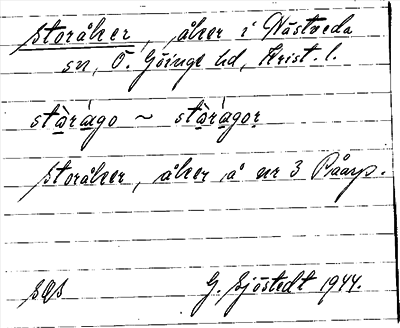 storåker, åker i Nästveda
sn, Ö. Göinge hd, Krist. l.
stòrágo ~ stòrágor
storåker, åker å nr 3 Råarp.
G. Sjöstedt 1944.